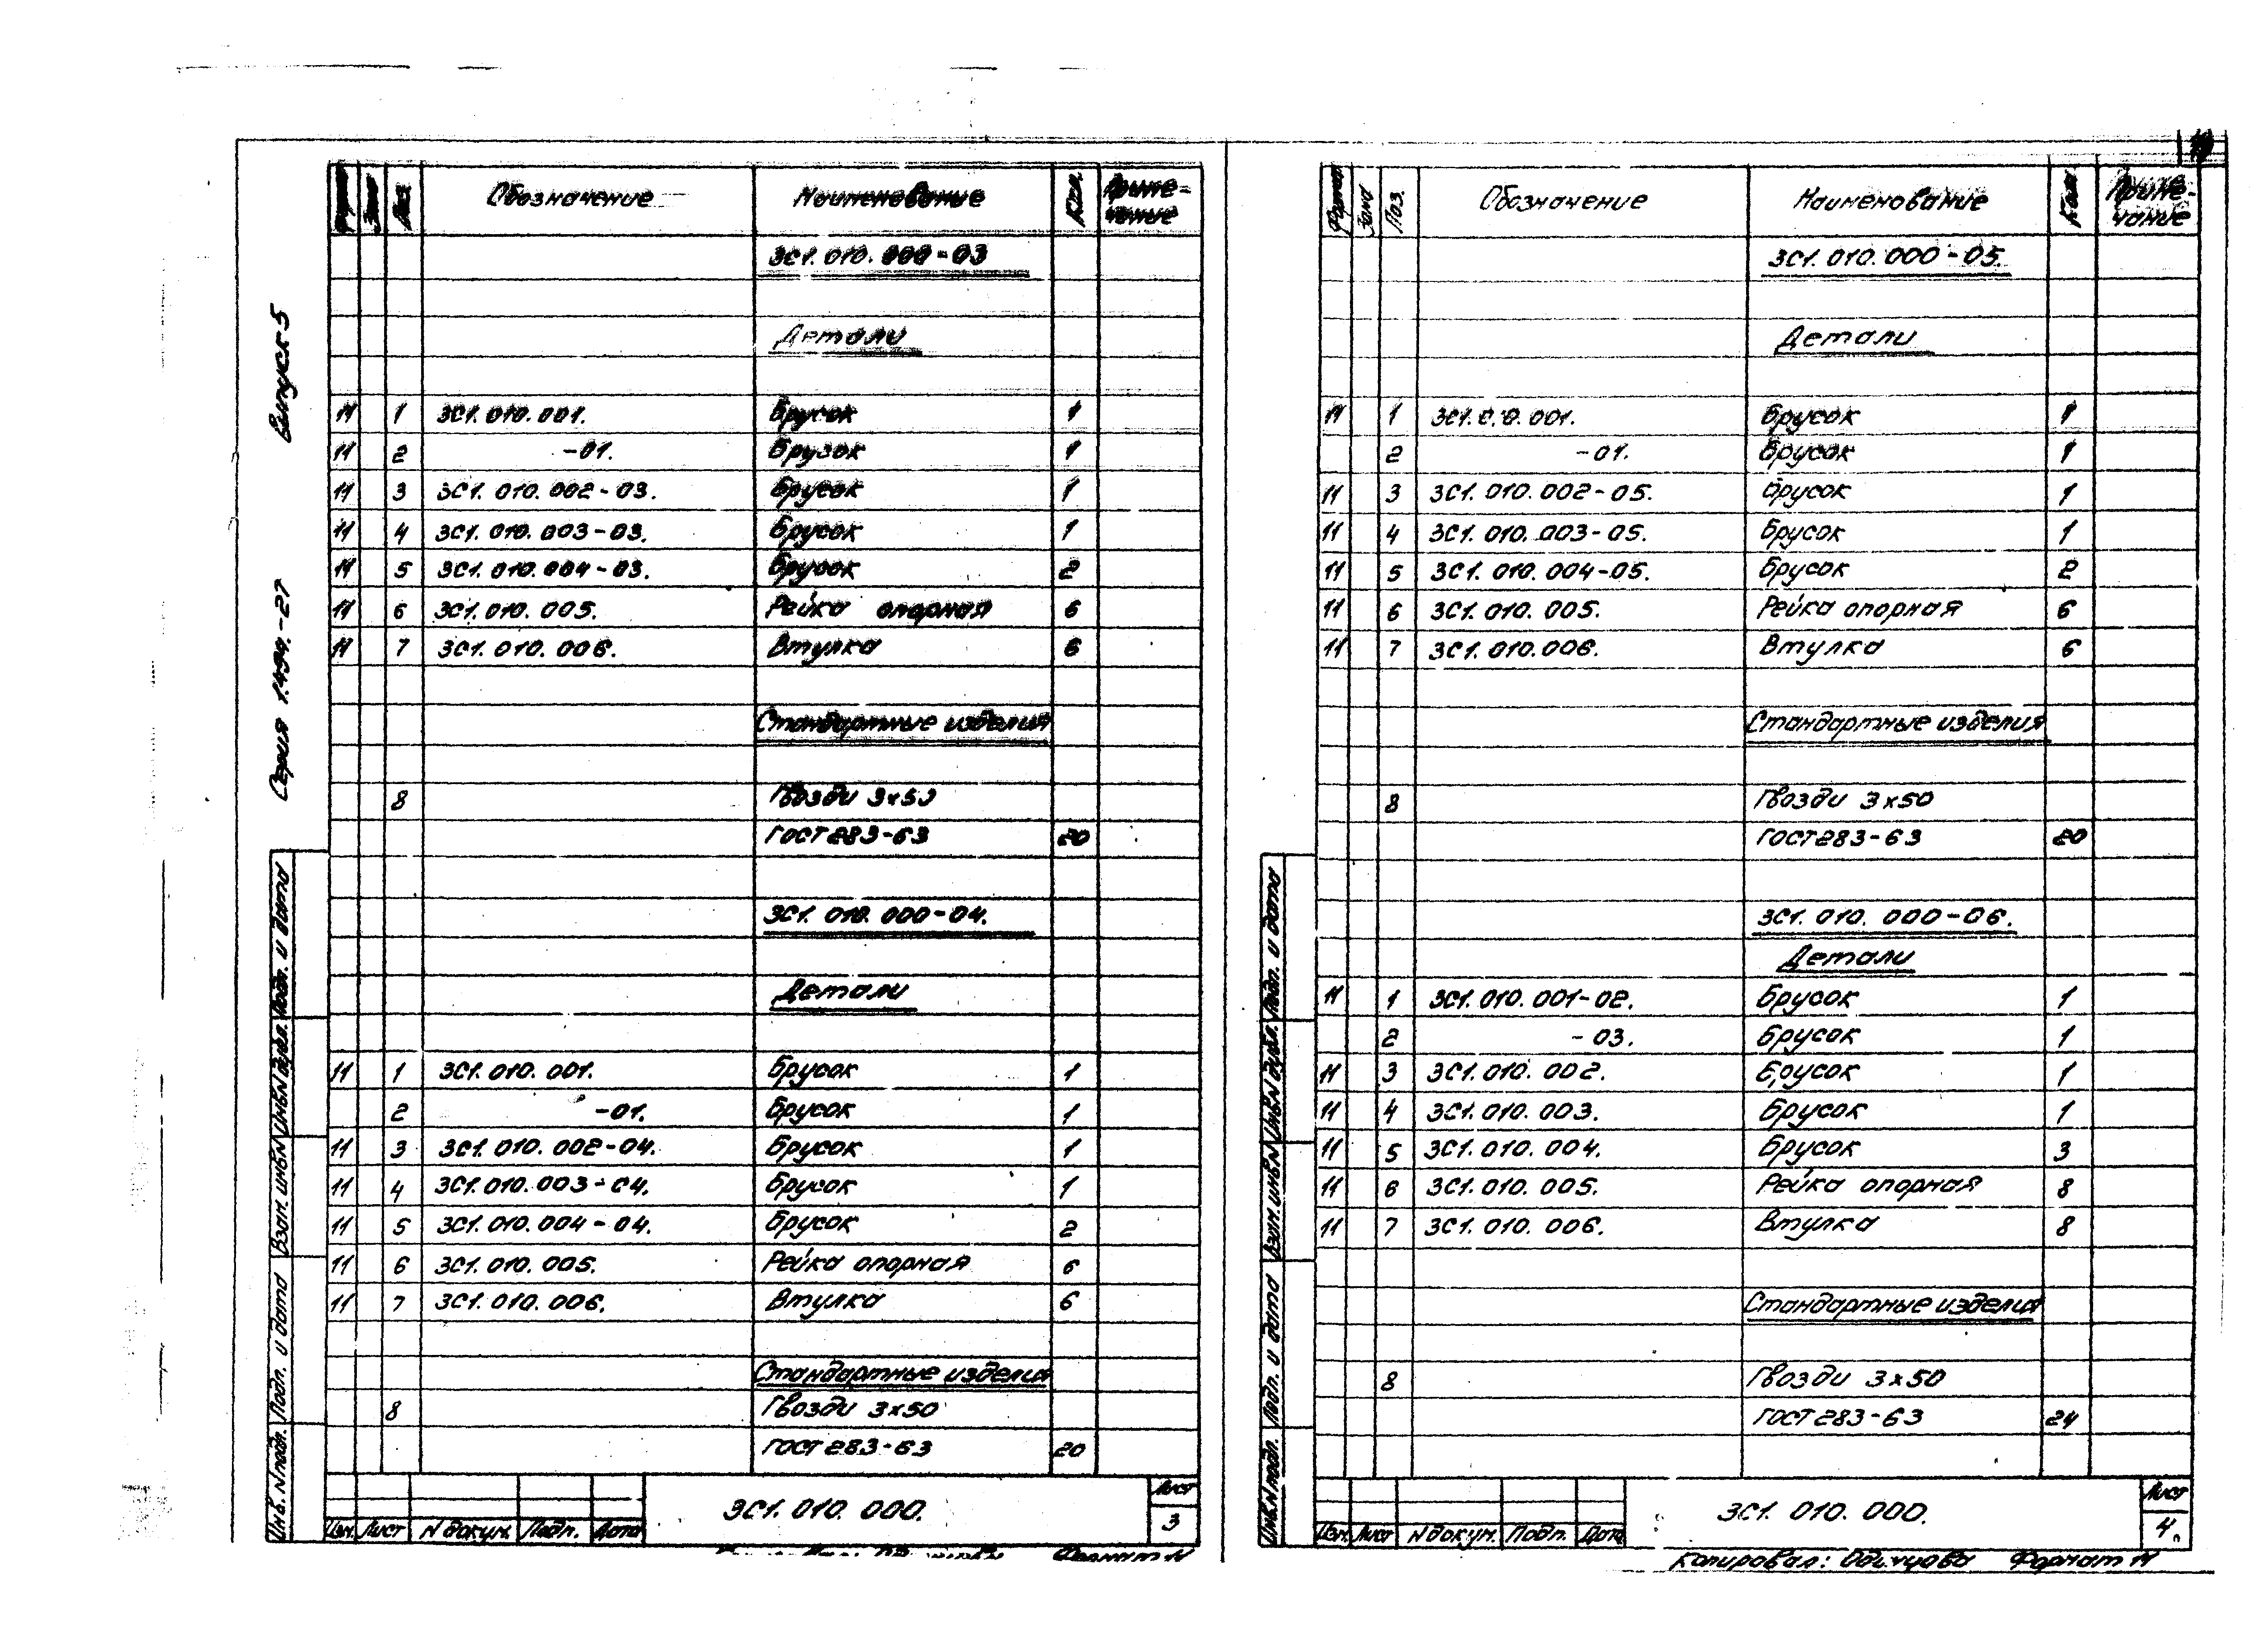 19
Выпуск 5
Серия 1.494.-27
Формат Зона Поз. Обозначение Наименование Кол. Приме-
чание
3С1.010.000-03
Детали
11 1 3С1.010.001. Брусок 1
11 2 -01. Брусок 1
11 3 3С1.010.002-03. Брусок 1
11 4 3С1.010.003-03. Брусок 1
11 5 3С1.010.004-03. Брусок 2
11 6 3С1.010.005. Рейка опорная 6
11 7 3С1.010.006. Втулка 6
Стандартные изделия
8 Гвозди 3х50
ГОСТ 283-63 20
3С1.010.000-04.
Детали
11 1 3С1.010.001. Брусок 1
2 -01. Брусок 1
11 3 3С1.010.002-04. Брусок 1
11 4 3С1.010.003-04. Брусок 1
11 5 3С1.010.004-04. Брусок 2
11 6 3С1.010.005. Рейка опорная 6
11 7 3С1.010.006. Втулка 6
Стандартные изделия
8 Гвозди 3х50
ГОСТ 283-63 20
Инв. N подл. Подп. и дата Взам. инв N Инв N дубл. Подп. и дата
Изм. Лист N докум. Подп. Дата
3С1.010.000.
Лист
3
Формат 11
Формат Зона Поз. Обозначение Наименование Кол. Приме-
чание
3С1.010.000-05.
Детали
11 1 3С1.010.001. Брусок 1
2 -01. Брусок 1
11 3 3С1.010.002-05. Брусок 1
11 4 3С1.010.003-05. Брусок 1
11 5 3С1.010.004-05. Брусок 2
11 6 3С1.010.005. Рейка опорная 6
11 7 3С1.010.006. Втулка 6
Стандартные изделия
8 Гвозди 3х50
ГОСТ 283-63 20
3С1.010.000-06.
Детали
11 1 3С1.010.001-02. Брусок 1
2 -03. Брусок 1
11 3 3С1.010.002. Брусок 1
11 4 3С1.010.003. Брусок 1
11 5 3С1.010.004. Брусок 3
11 6 3С1.010.005. Рейка опорная 8
11 7 3С1.010.006. Втулка 8
Стандартные изделия
8 Гвозди 3х50
ГОСТ 283-63 24
Инв N подл. Подп. и дата Взам. инв N Инв N дубл. Подп. и дата
Изм. Лист N докум. Подп. Дата
3С1.010.000.
Лист
4
Копировал: Одинцова Формат 11